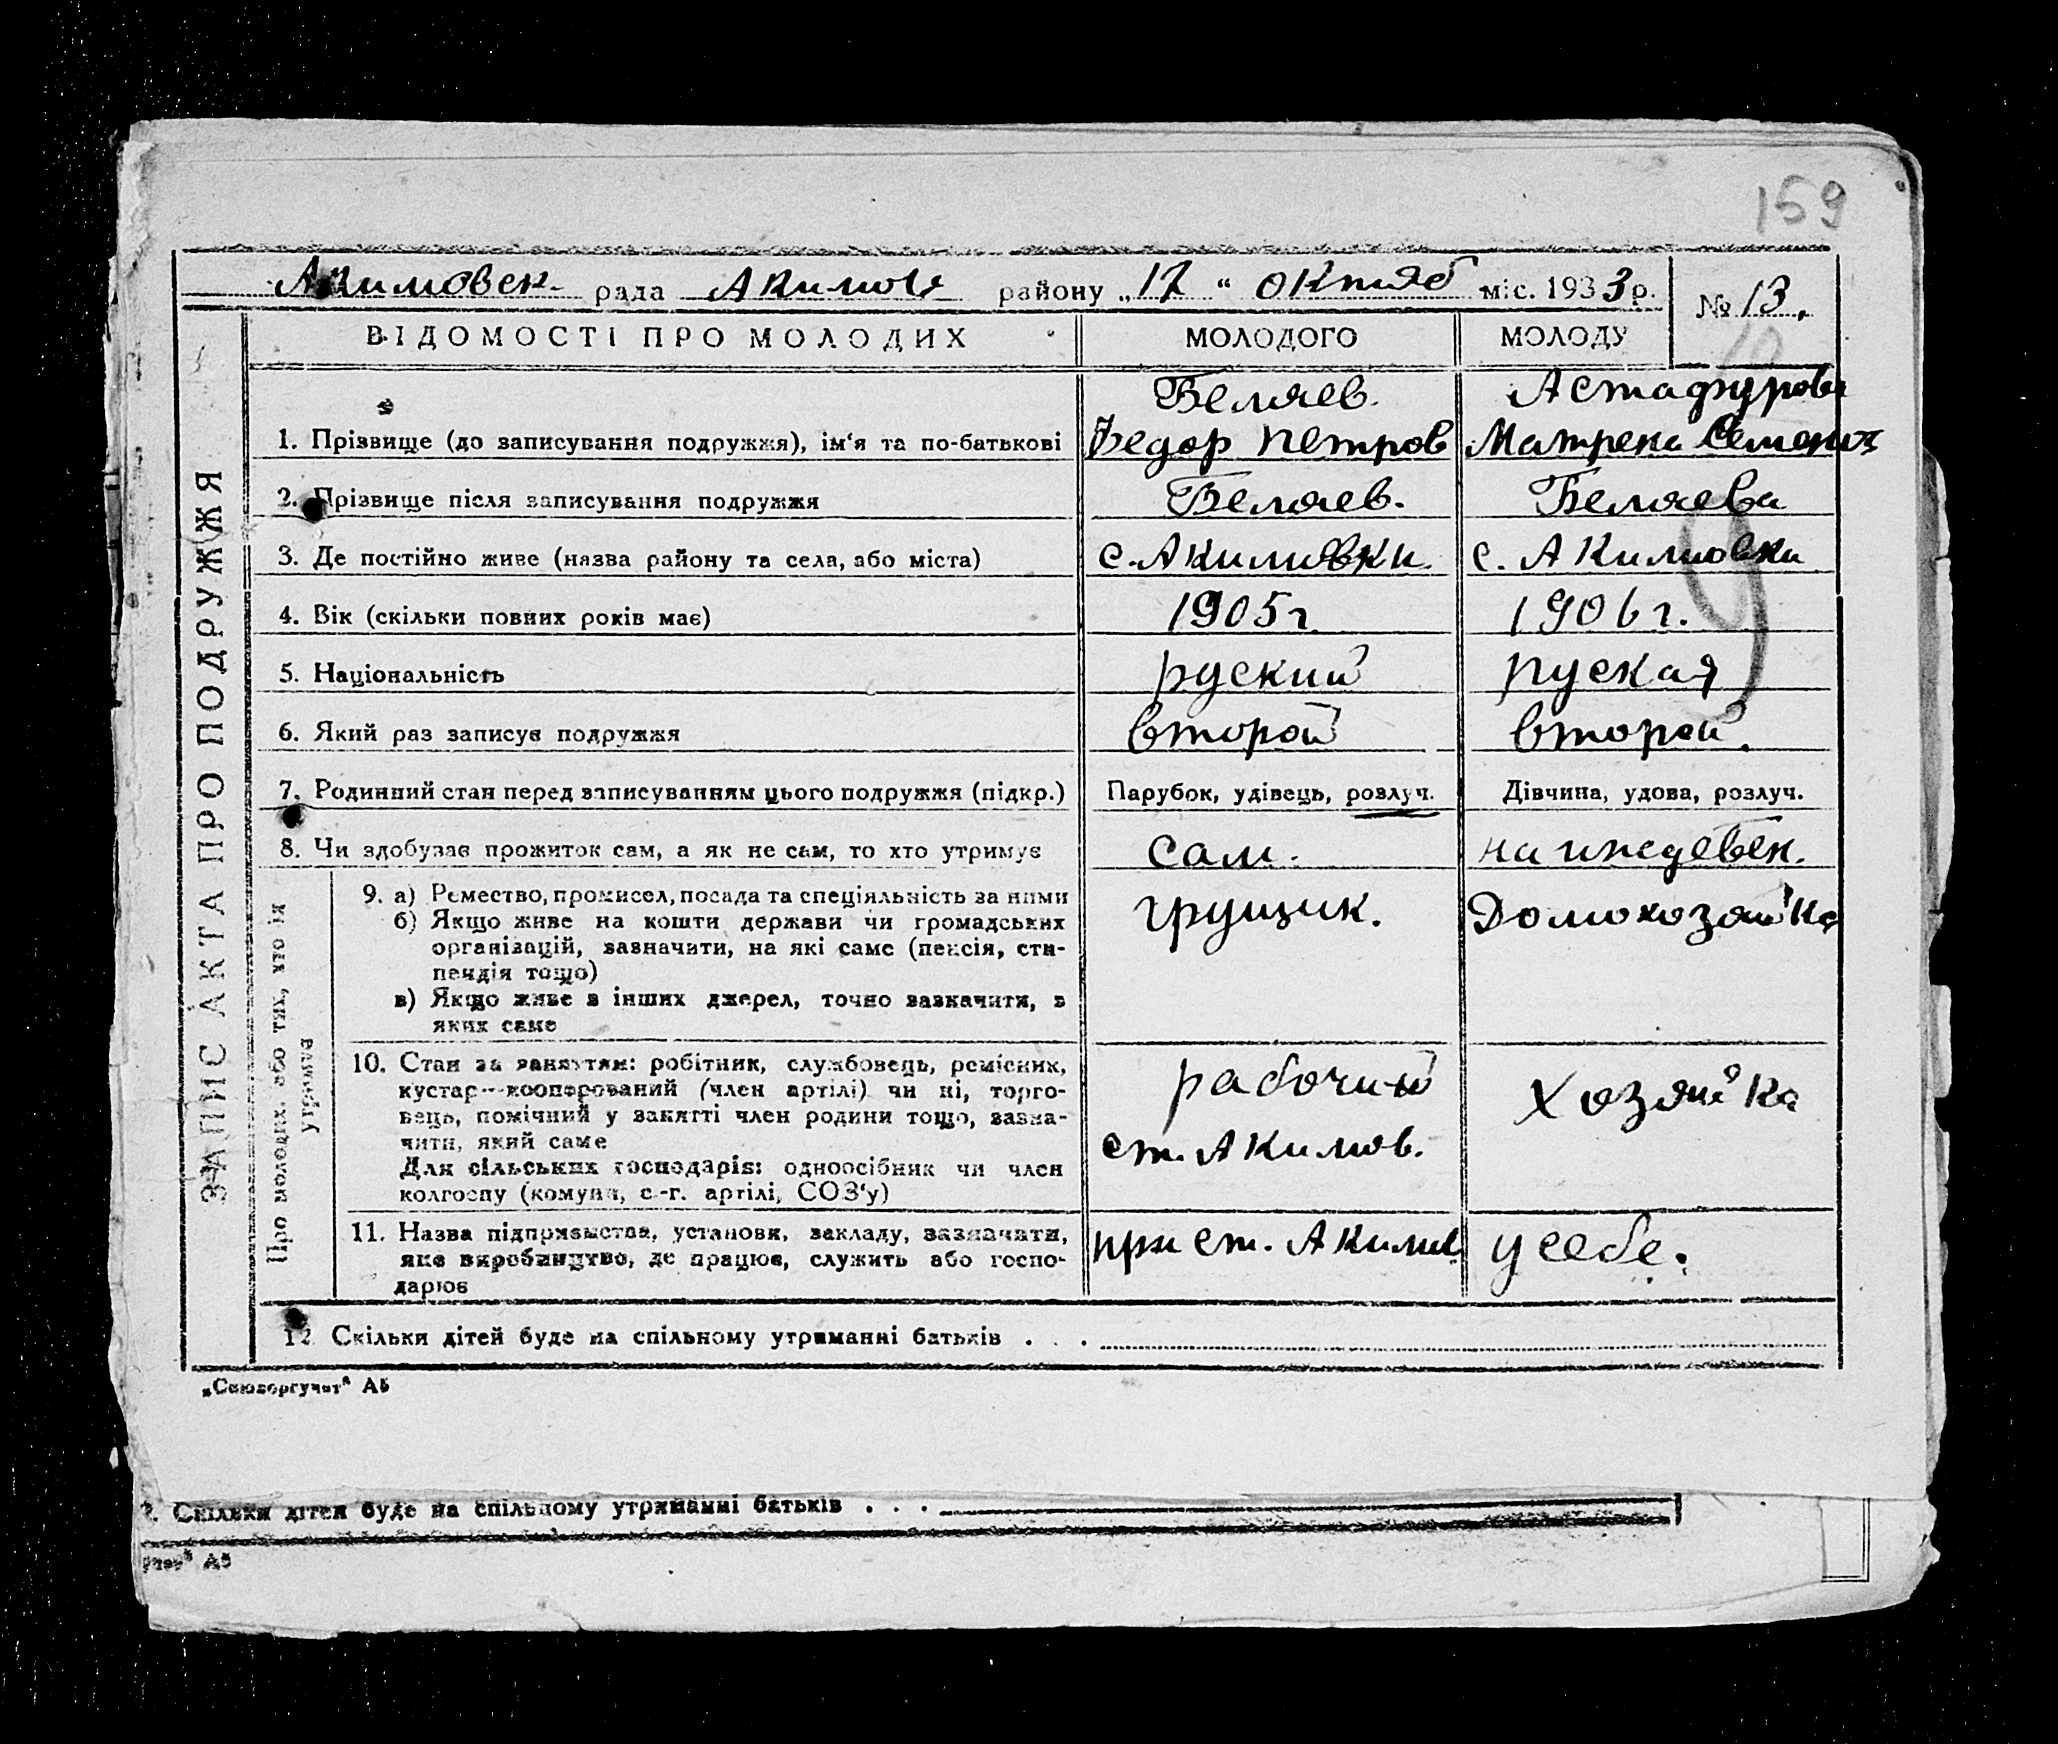 159
Акимовск. рада Акимов району „17“ октяб міс. 1933 р. № 13.
ВІДОМОСТІ ПРО МОЛОДИХ МОЛОДОГО МОЛОДУ
ЗАПИС АКТА ПРО ПОДРУЖЖЯ
Беляев. Астафурова
1. Прізвище (до записування подружжя), ім‘я та по-батькові Федор Петров Матрена Семенов
2. Прізвище після записування подружжя Беляев. Беляева
3. Де постійно живе (назва району та села, або міста) с. Акимовки. с. Акимовки
4. Вік (скільки повних років має) 1905 г. 1906 г.
5. Національність руский руская
6. Який раз записує подружжя второй второй.
7. Родинний стан перед записуванням цього подружжя (підкр.) Парубок, удівець, розлуч. Дівчина, удова, розлуч.
8. Чи здобуває прожиток сам, а як не сам, то хто утримує сам. на иждевен.
Про молодих, або тих, хто їх
утримує
9. а) Ремество, промисел, посада та спеціяльність за ними грущик. Домохозяйка
б) Якщо живе на кошти держави чи громадських
організацій, зазначити, на які саме (пенсія, сти-
пендія тощо)
в) Якщо живе з інших джерел, точно зазначити, з
яких саме
10. Стан за заняттям: робітник, службовець, ремісник, рабочий хозяйка
кустар—кооперований (член артілі) чи ні, торго-
вець, помічний у занятті член родини тощо, зазна-
чити, який саме ст. Акимов.
Для сільських господарів: одноосібник чи член
колгоспу (комуни, с.-г. артілі, СОЗ‘у)
11. Назва підприємства, установи, закладу, зазначати, при ст. Акимов у себе.
яке виробництво, де працює, служить або госпо-
дарює
12. Скільки дітей буде на спільному утриманні батьків . . .
„Союзоргучет“ А5
2. Скільки дітей буде на спільному утриманні батьків . . .
учет“ А5